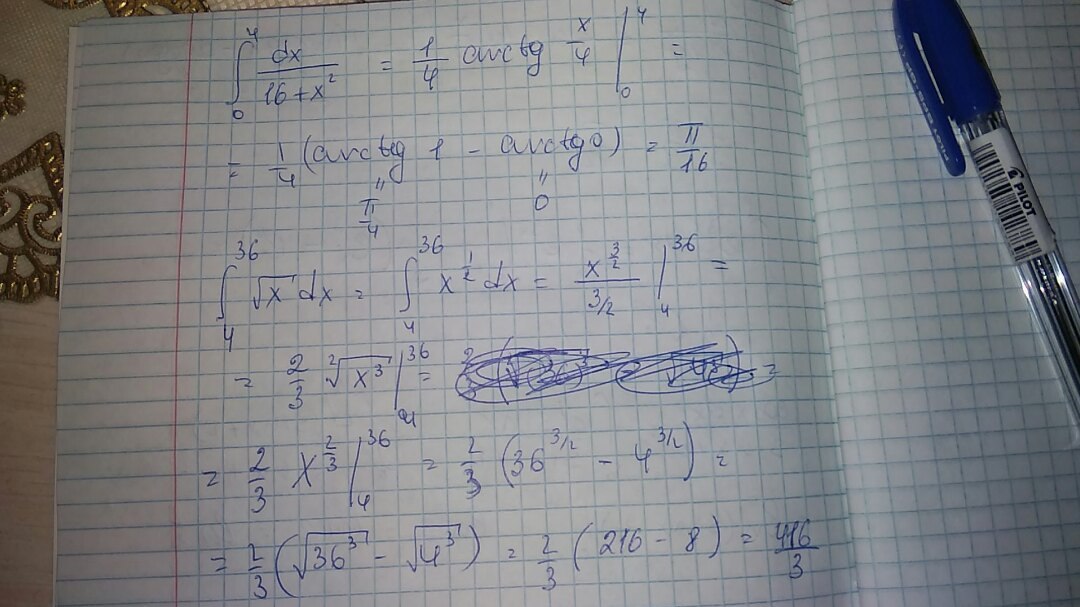 ∫₀⁴ dx/(16+x²) = 1/4 arctg x/4 |₀⁴ =
= 1/4 (arctg 1 - arctg 0) = π/16
" "
π/4 0
∫₄³⁶ √x dx = ∫₄³⁶ x^(1/2) dx = x^(3/2)/(3/2) |₄³⁶ =
= 2/3 ²√(x³) |₄³⁶ =
= 2/3 x^(2/3) |₄³⁶ = 2/3 (36^(3/2) - 4^(3/2)) =
= 2/3 (√(36³) - √(4³)) = 2/3 (216 - 8) = 416/3
PILOT